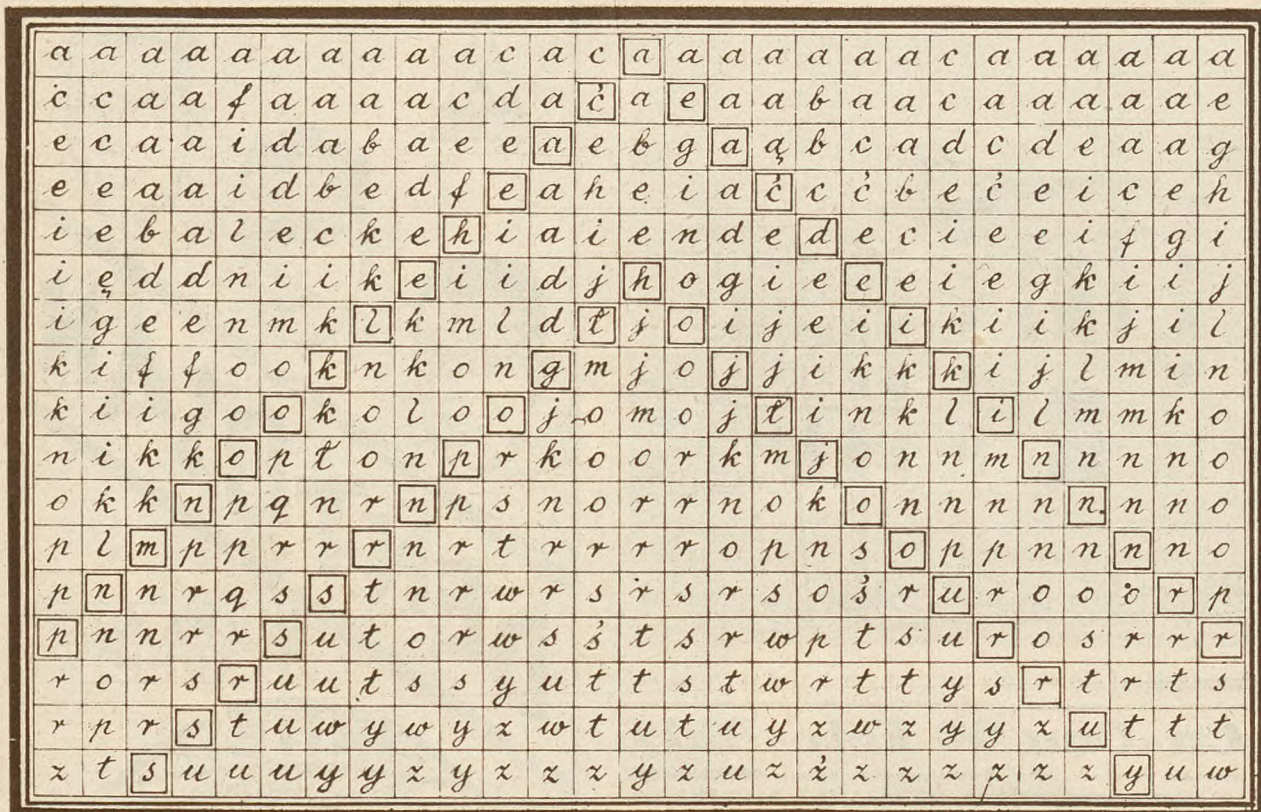 a a a a a a a a a a c a c a a a a a a a c a a a a a a
ċ c a a f a a a a c d a ċ a e a a b a a c a a a a a e
e c a a i d a b a e e a e b g a ą b c a d c d e a a g
e e a a i d b e d f e a h e i a ċ c ċ b e ċ e i c e h
i e b a l e c k e h i a i e n d e d e c i e e i f g i
i ę d d n i i k e i i d j h o g i e e e i e g k i i j
i g e e n m k l k m l d t j o i j e i i k i i k j i l
k i f f o o k n k o n g m j o j j i k k k i j l m i n
k i i g o o k o l o o j o m o j t i n k l i l m m k o
n i k k o p t o n p r k o o r k m j o n n m n n n n o
o k k n p q n r n p s n o r r n o k o n n n n n. n n o
p l m p p r r r n r t r r r r o p n s o p p n n n n o
p n n r q s s t n r w r s r s r s o ṡ r u r o o ȯ r p
p n n r r s u t o r w s ṡ t s r w p t s u r o s r r r
r o r s r u u t s s y u t t s t w r t t y s r t r t s
r p r s t u w y w y z w t u t u y z w z y y z u t t t
z t s u u u y y z y z z z y z u z ż z z z z z z y u w